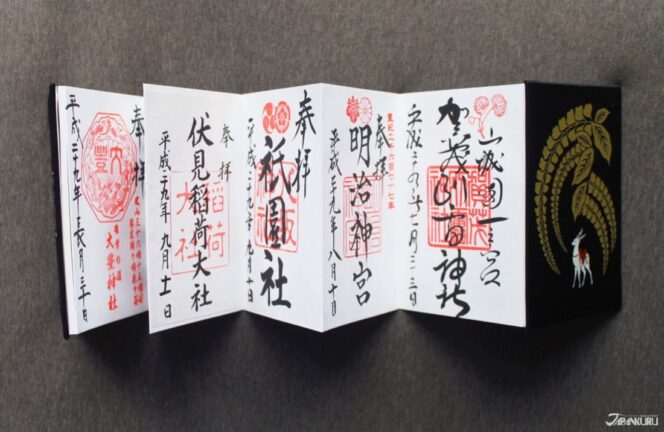 山城国一之宮
賀茂別雷神社
奉拝
明治神宮
平成二十九年八月十日
奉拝
祇園社
平成二十九年九月十日
奉拝
稲荷
大社
伏見稲荷大社
平成二十九年九月十一日
奉拝
大豊
大豊神社
平成二十九年長月三十日
JAPANKURU